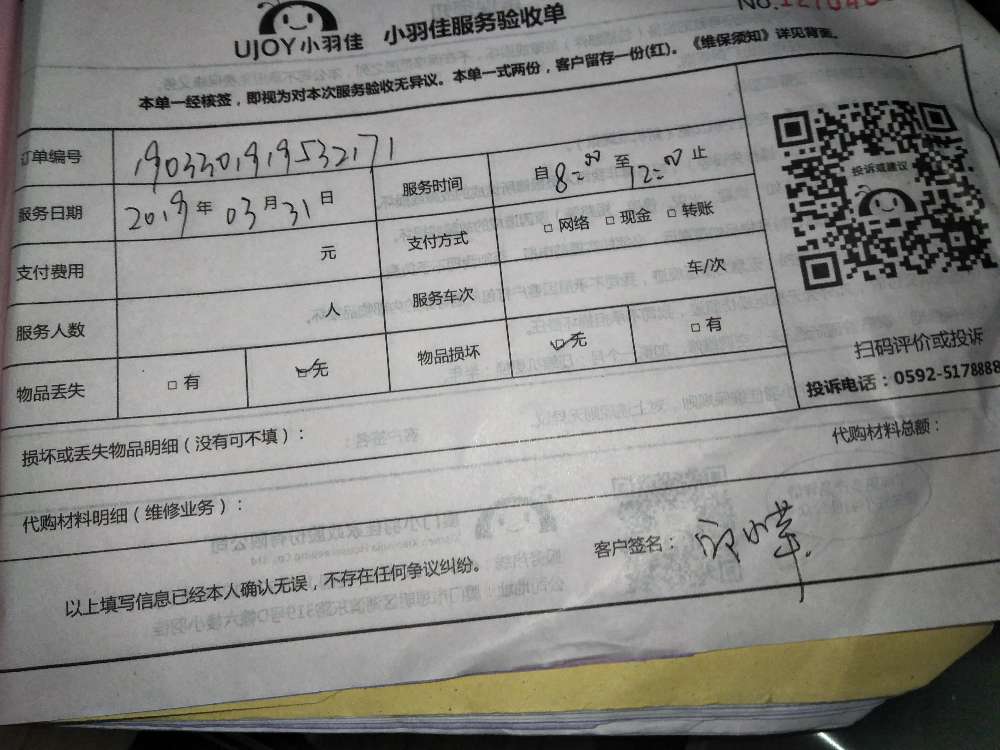 UJOY小羽佳 小羽佳服务验收单
本单一经核签，即视为对本次服务验收无异议。本单一式两份，客户留存一份(红)。《维保须知》详见背面。
订单编号 190330191953217​1
服务日期 2019年 03月 31日 服务时间 自8:00至12:00止
支付费用 元 支付方式 □ 网络 □ 现金 □ 转账
服务人数 人 服务车次 车/次
物品丢失 □ 有 □ 无 物品损坏 □ 无 □ 有
投诉或建议
扫码评价或投诉
投诉电话：0592-5178888
损坏或丢失物品明细（没有可不填）：
代购材料明细（维修业务）： 代购材料总额：
以上填写信息已经本人确认无误，不存在任何争议纠纷。 客户签名：